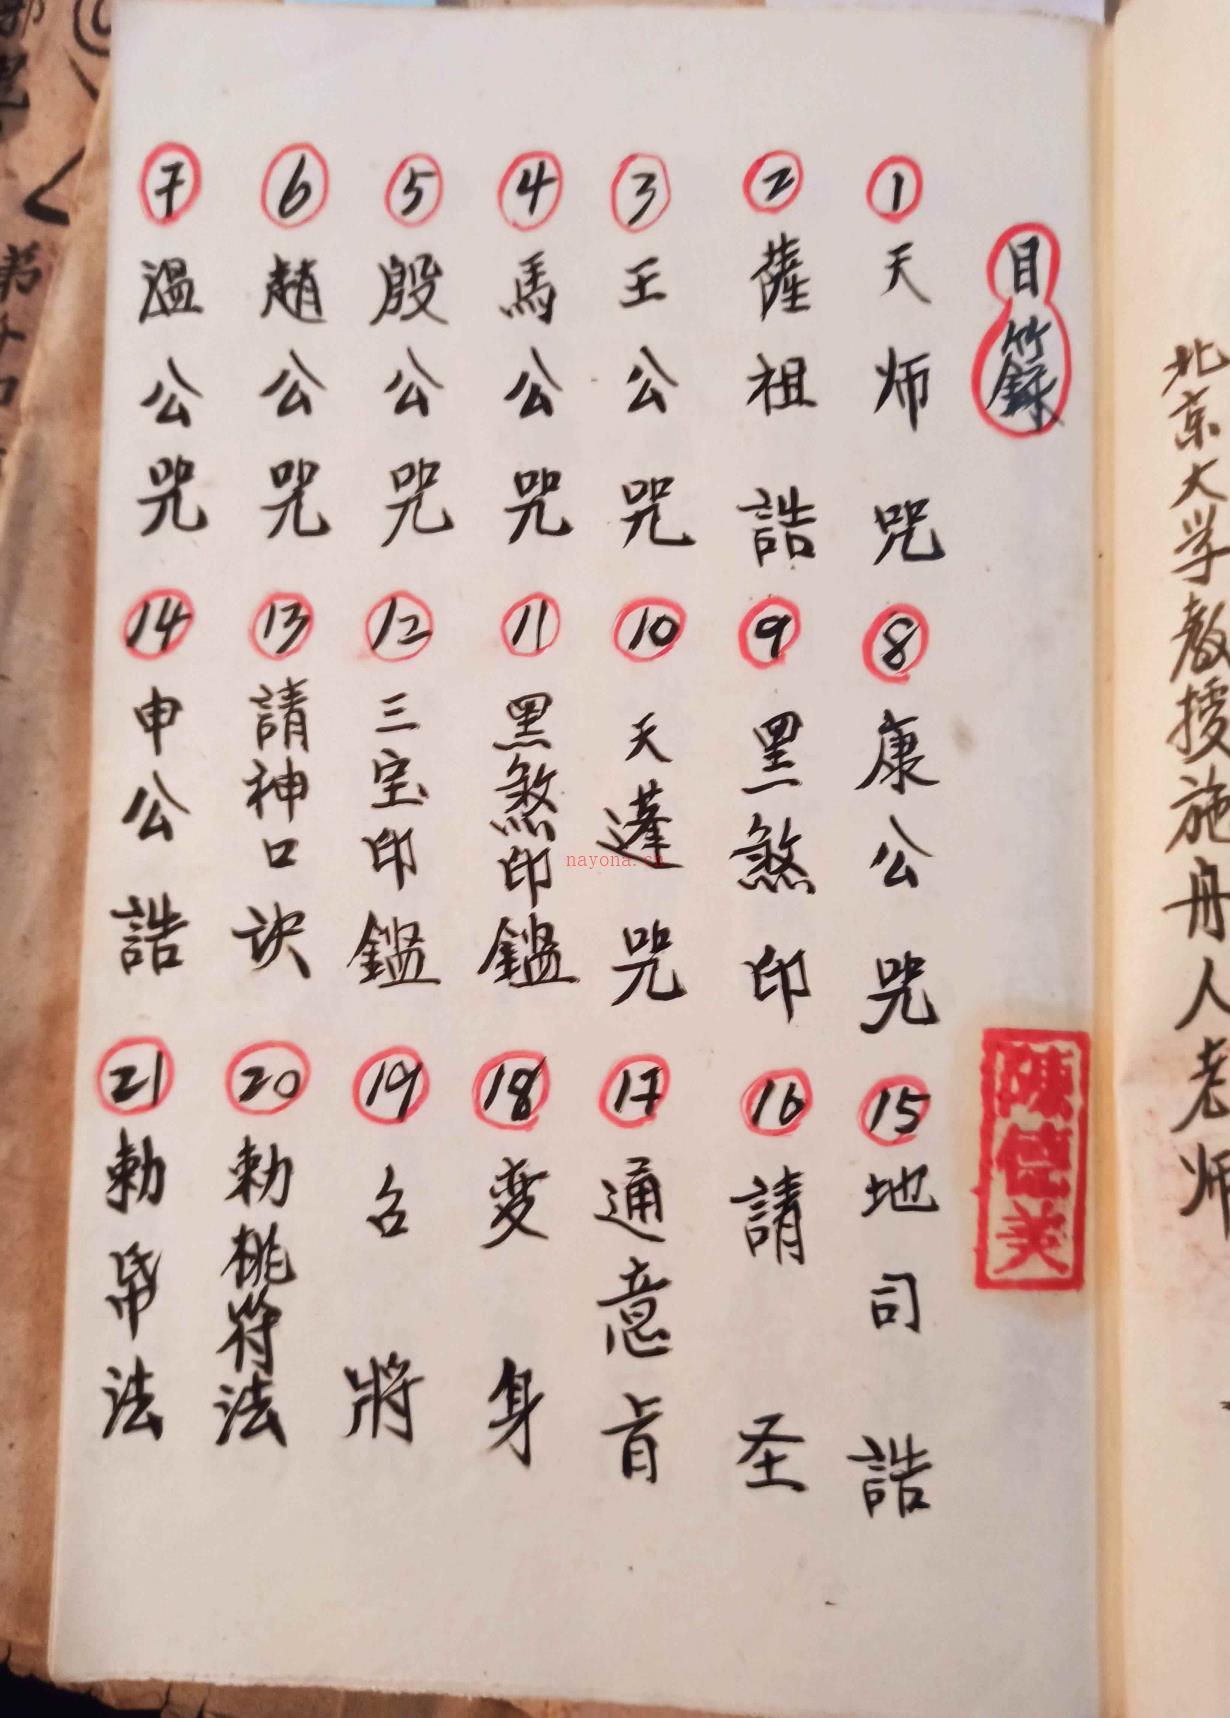 北京大学教授施舟人老师
目籙
陳德美
① 天师咒
② 薩祖誥
③ 王公咒
④ 馬公咒
⑤ 殷公咒
⑥ 趙公咒
⑦ 溫公咒
⑧ 康公咒
⑨ 黑煞印
⑩ 天蓬咒
⑪ 黑煞印鑑
⑫ 三宝印鑑
⑬ 請神口诀
⑭ 申公誥
⑮ 地司誥
⑯ 請圣
⑰ 通意旨
⑱ 变身
⑲ 召將
⑳ 勅桃符法
㉑ 勅帋法
nayona.cn